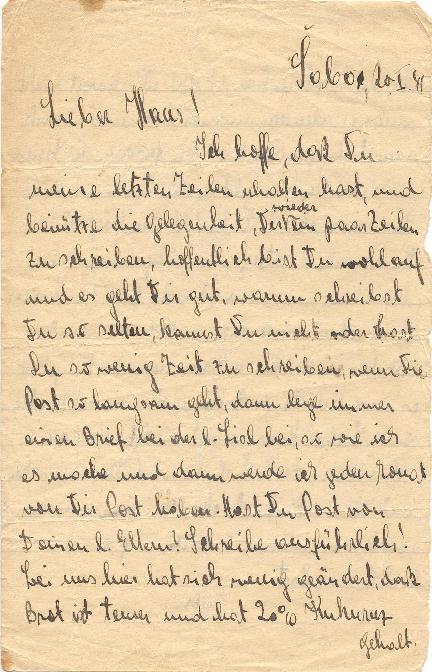 Šabac, 20.I.41
Lieber Hans!
Ich hoffe, daß Du
meine letzten Zeilen erhalten hast, und
benütze die Gelegenheit, Dir wieder ein paar Zeilen
zu schreiben, hoffentlich bist Du wohlauf
und es geht Dir gut, warum schreibst
Du so selten, kannst Du nicht oder hast
Du so wenig Zeit zu schreiben, wenn die
Post so langsam geht, dann lege immer
einen Brief bei der l. bei, so wie ich
es mache und dann werde ich jeden
von Dir Post haben. Hast Du Post von
Deinen l. Eltern? Schreibe ausführlich!
Bei uns hier hat sich wenig geändert, daß
Brot ist teuer und hat 20% Kukuruz
gehalt.